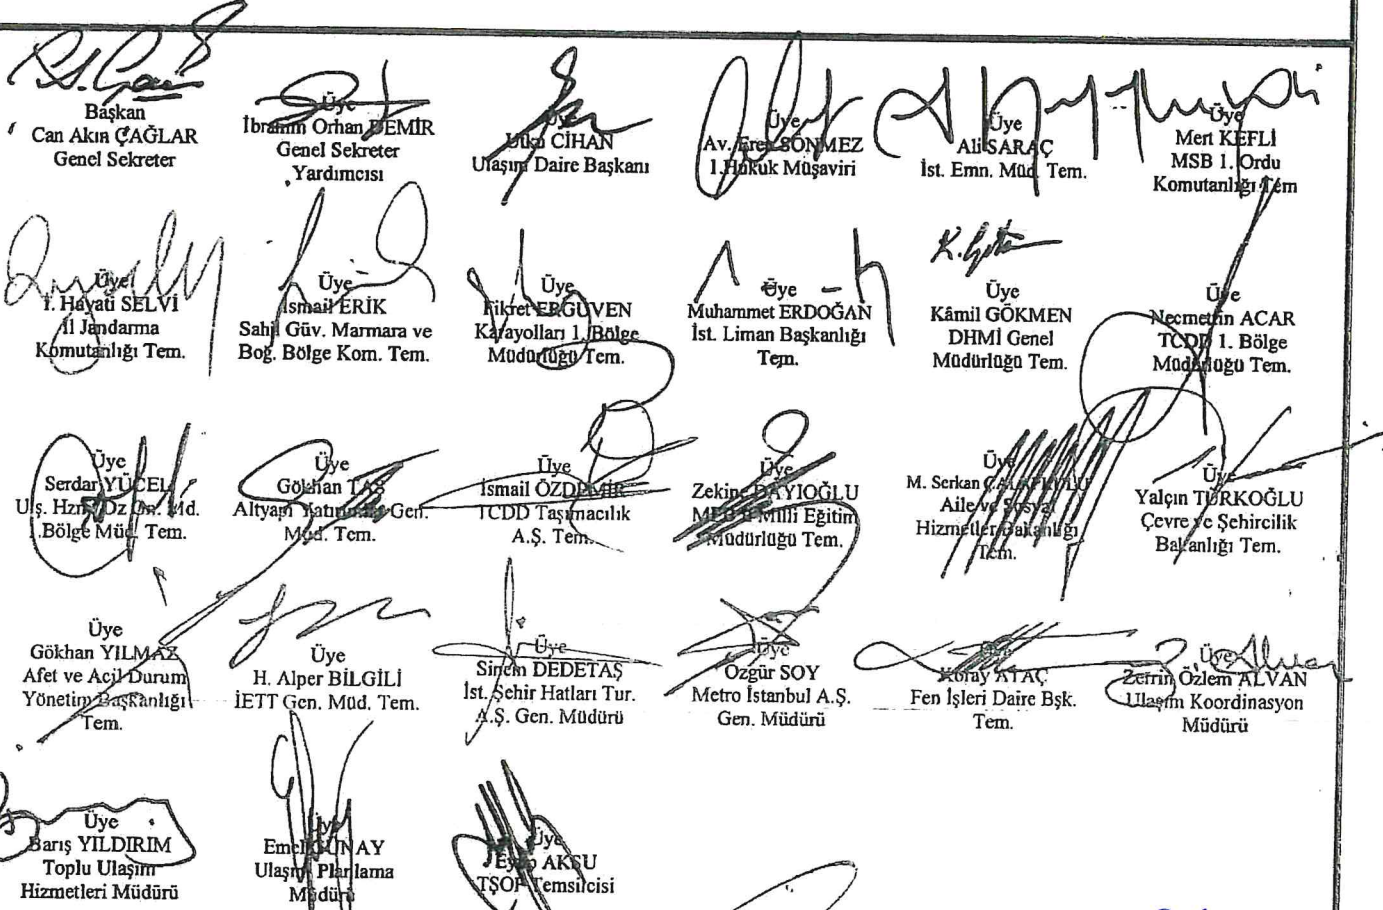 Başkan
Can Akın ÇAĞLAR
Genel Sekreter
Üye
İbrahim Orhan DEMİR
Genel Sekreter
Yardımcısı
Üye
Utku CİHAN
Ulaşım Daire Başkanı
Üye
Av. Eren SÖNMEZ
1.Hukuk Müşaviri
Üye
Ali SARAÇ
İst. Emn. Müd. Tem.
Üye
Mert KEFLİ
MSB 1. Ordu
Komutanlığı Tem
Üye
İ. Hayati SELVİ
İl Jandarma
Komutanlığı Tem.
Üye
İsmail ERİK
Sahil Güv. Marmara ve
Boğ. Bölge Kom. Tem.
Üye
Fikret ERGÜVEN
Karayolları 1. Bölge
Müdürlüğü Tem.
Üye
Muhammet ERDOĞAN
İst. Liman Başkanlığı
Tem.
Üye
Kâmil GÖKMEN
DHMİ Genel
Müdürlüğü Tem.
Üye
Necmettin ACAR
TCDD 1. Bölge
Müdürlüğü Tem.
Üye
Serdar YÜCEL
Ulş. Hzm. Dz Md.
1.Bölge Müd. Tem.
Üye
Gökhan TAŞ
Altyapı Yatırımları Gen.
Müd. Tem.
Üye
İsmail ÖZDEMİR
TCDD Taşımacılık
A.Ş. Tem.
Üye
Zekinç DAYIOĞLU
MEB İl Milli Eğitim
Müdürlüğü Tem.
Üye
M. Serkan
Aile ve Sosyal
Hizmetler Bakanlığı
Tem.
Üye
Yalçın TÜRKOĞLU
Çevre ve Şehircilik
Bakanlığı Tem.
Üye
Gökhan YILMAZ
Afet ve Acil Durum
Yönetim Başkanlığı
Tem.
Üye
H. Alper BİLGİLİ
İETT Gen. Müd. Tem.
Üye
Sinem DEDETAŞ
İst. Şehir Hatları Tur.
A.Ş. Gen. Müdürü
Üye
Özgür SOY
Metro İstanbul A.Ş.
Gen. Müdürü
Üye
Koray ATAÇ
Fen İşleri Daire Bşk.
Tem.
Üye
Zerrin Özlem ALVAN
Ulaşım Koordinasyon
Müdürü
Üye
Barış YILDIRIM
Toplu Ulaşım
Hizmetleri Müdürü
Üye
Emel GÜNAY
Ulaşım Planlama
Müdürü
Üye
Eyüp AKSU
TŞOF Temsilcisi